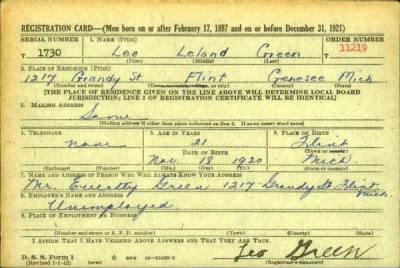 REGISTRATION CARD—(Men born on or after February 17, 1897 and on or before December 31, 1921)
SERIAL NUMBER 1. NAME (Print) ORDER NUMBER
T 1730 Leo Leland Green T 11219
(First) (Middle) (Last)
2. PLACE OF RESIDENCE (Print)
1217 Grandy St Flint Genesee Mich
(Number and street) (Town, township, village, or city) (County) (State)
[THE PLACE OF RESIDENCE GIVEN ON THE LINE ABOVE WILL DETERMINE LOCAL BOARD
JURISDICTION; LINE 2 OF REGISTRATION CERTIFICATE WILL BE IDENTICAL]
3. MAILING ADDRESS
Same
[Mailing address if other than place indicated on line 2. If same insert word same]
4. TELEPHONE 5. AGE IN YEARS 6. PLACE OF BIRTH
none 21 Flint
DATE OF BIRTH (Town or county)
Nov. 18 1920 Mich
(Exchange) (Number) (Mo.) (Day) (Yr.) (State or country)
7. NAME AND ADDRESS OF PERSON WHO WILL ALWAYS KNOW YOUR ADDRESS
Mr. Green 1217 Grandy St Flint Mich.
8. EMPLOYER'S NAME AND ADDRESS
Unemployed
9. PLACE OF EMPLOYMENT OR BUSINESS
(Number and street or R. F. D. number) (Town) (County) (State)
I AFFIRM THAT I HAVE VERIFIED ABOVE ANSWERS AND THAT THEY ARE TRUE.
D. S. S. Form 1 Leo Green
(Revised 1-1-42) (Registrant's signature)